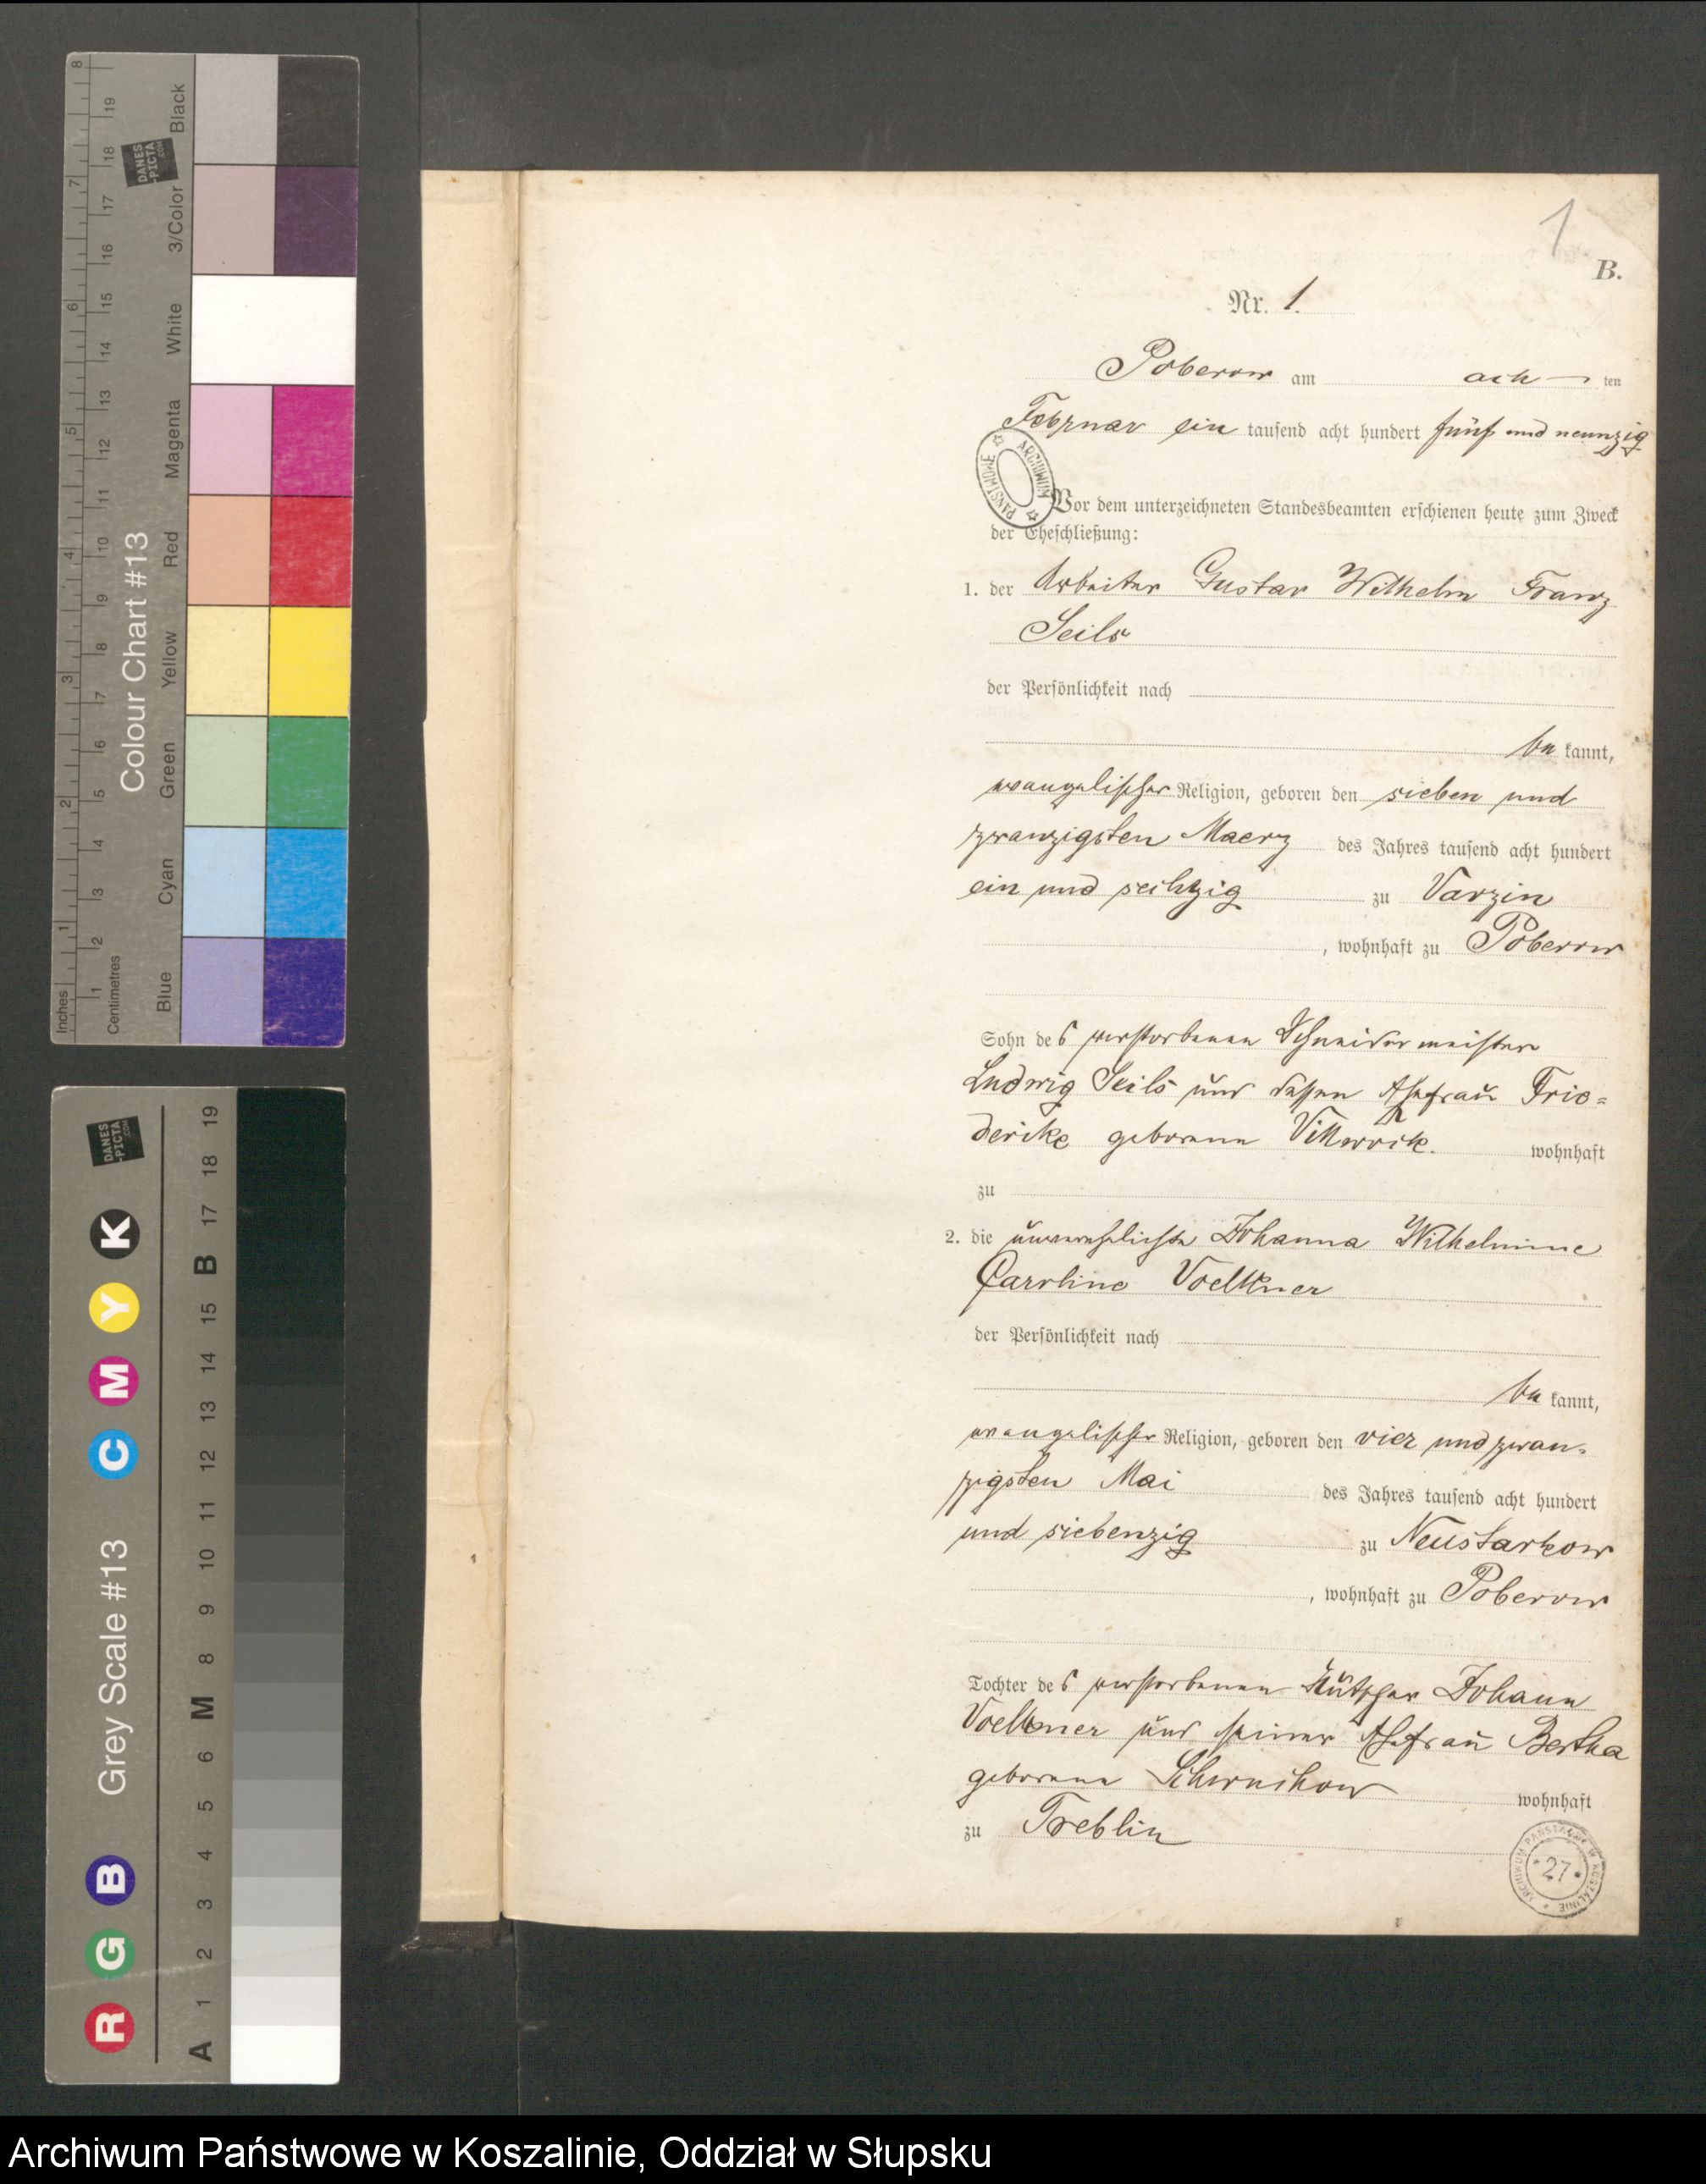 1
B.
Nr. 1.
Poberow am ach ten
Februar ein tausend acht hundert fünf und neunzig
ARCHIWUM PAŃSTWOWE
Vor dem unterzeichneten Standesbeamten erschienen heute zum Zweck
der Eheschließung:
1. der Arbeiter Gustav Wilhelm Franz
Seils
der Persönlichkeit nach
be kannt,
evangelischer Religion, geboren den sieben und
zwanzigsten Maerz des Jahres tausend acht hundert
ein und sechzig zu Varzin
, wohnhaft zu Poberow
Sohn des verstorbenen Schneidermeisters
Ludwig Seils und dessen Ehefrau Frie=
derike geborene wohnhaft
zu
2. die unverehelichte Johanna Wilhelmine
Caroline Voelkner
der Persönlichkeit nach
be kannt,
evangelischer Religion, geboren den vier und zwan=
zigsten Mai des Jahres tausend acht hundert
und siebenzig zu Neustarkow
, wohnhaft zu Poberow
Tochter des verstorbenen Johann
Voelkner und seiner Ehefrau Bertha
geborene wohnhaft
zu Treblin
ARCHIWUM PAŃSTWOWE W KOSZALINIE
27
Inches
Centimetres
Colour Chart #13
Blue
Cyan
Green
Yellow
Red
Magenta
White
3/Color
Black
DANES
-PICTA
.COM
1 2 3 4 5 6 7 8
1 2 3 4 5 6 7 8 9 10 11 12 13 14 15 16 17 18 19
DANES
-PICTA
.COM
R G B Grey Scale #13 C M Y K
A 1 2 3 4 5 6 M 8 9 10 11 12 13 14 15 B 17 18 19
Archiwum Państwowe w Koszalinie, Oddział w Słupsku